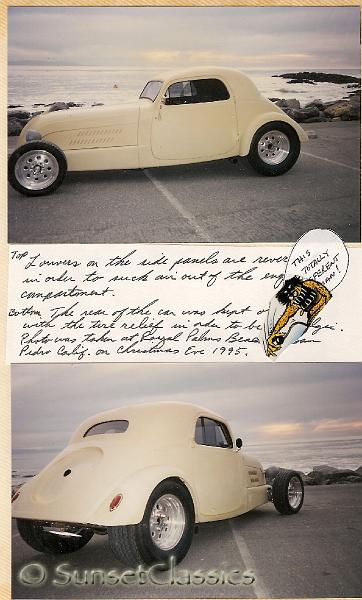 Top Louvers on the side panels are rever
in order to suck air out of the eng
compartment.
THIS
TOTALLY
DIFFERENT
MAN!
Bottom The rear of the car was kept
with the tire relief in order to be
Photo was taken at Royal Palms Beach San
Pedro Calif. on Christmas Eve 1995.
© SunsetClassics